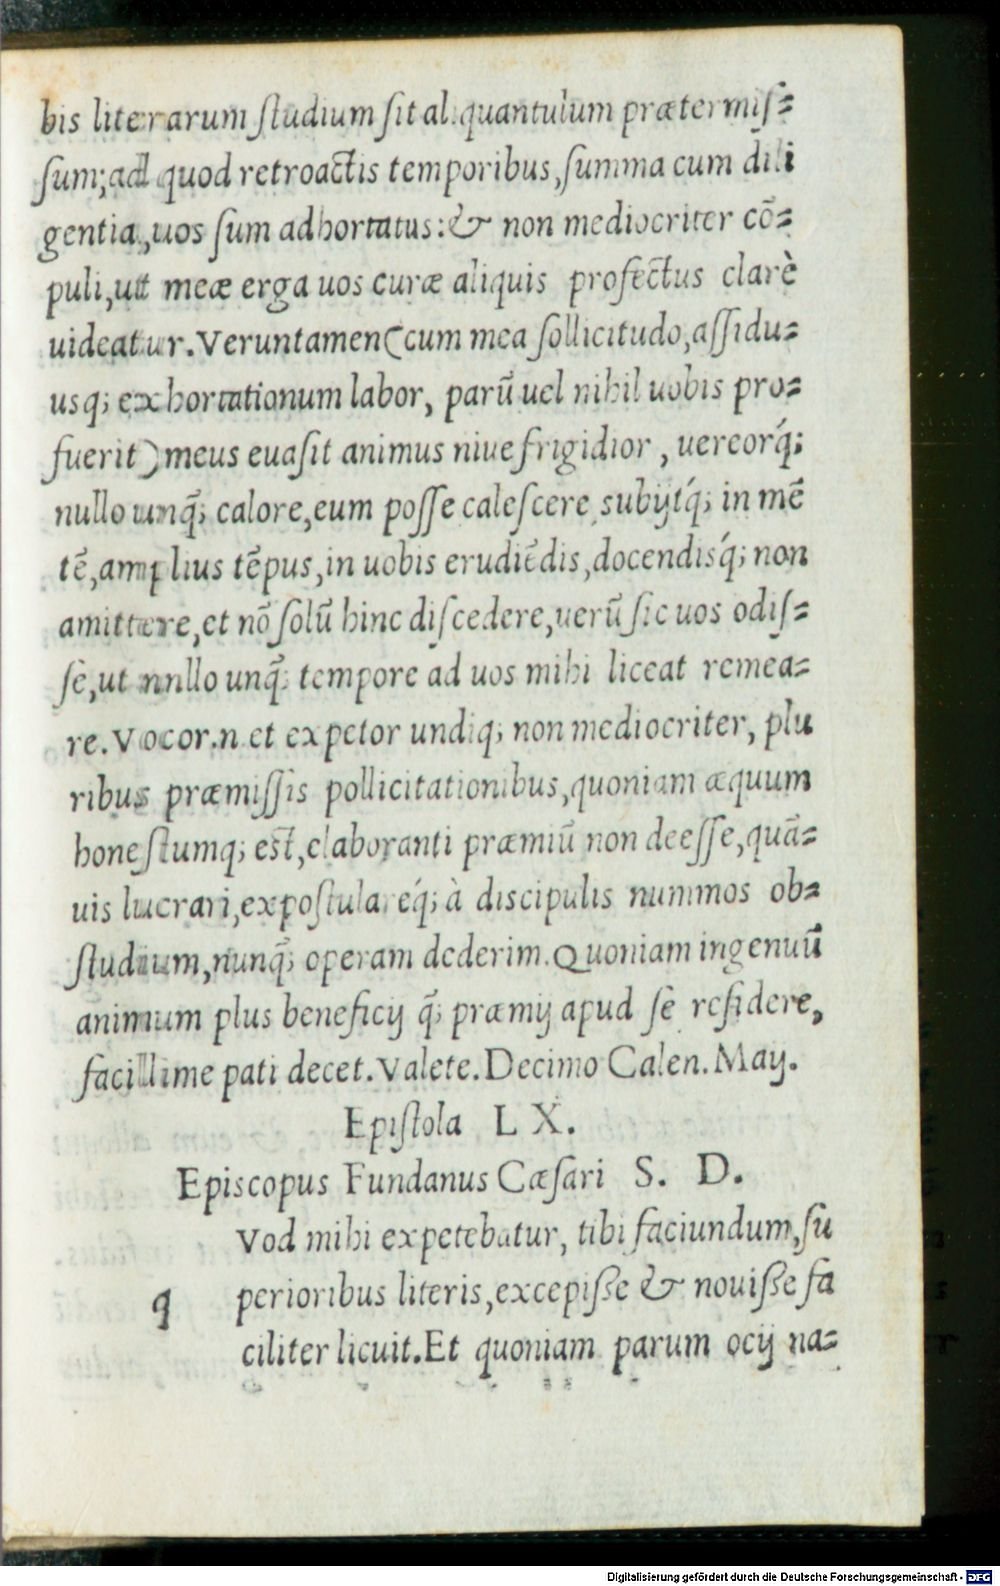 bis literarum ſtudium ſit aliquantulum prætermiſ⸗
ſum; ad quod retroactis temporibus, ſumma cum dili
gentia, uos ſum adhortatus: & non mediocriter cō⸗
puli, ut meæ erga uos curæ aliquis profectus clarè
uideatur. Veruntamen (cum mea ſollicitudo, aſſidu⸗
usq; exhortationum labor, parū uel nihil uobis pro⸗
fuerit) meus euaſit animus niue frigidior, uereorq́;
nullo unq̄; calore, eum poſſe caleſcere, subijtq́; in mē
tē, amplius tēpus, in uobis erudiēdis, docendisq́; non
amittere, et nō ſolū hinc diſcedere, uerū ſic uos odiſ⸗
ſe, ut nnllo unq̄; tempore ad uos mihi liceat remea⸗
re. Vocor.n. et expetor undiq; non mediocriter, plu
ribus præmiſſis pollicitationibus, quoniam æquum
honeſtumq; eſt, elaboranti præmiū non deeſſe, quā⸗
uis lucrari, expoſtulareq́; à discipulis nummos ob⸗
ſtudium, nunq̄; operam dederim. Quoniam ingenuū
animum plus beneficij q̄; præmij apud ſe reſidere,
facillime pati decet. Valete. Decimo Calen. Maij.
Epiſtola LX.
Episcopus Fundanus Cæſari S. D.
q Vod mihi expetebatur, tibi faciundum, ſu
perioribus literis, excepiſſe & nouiſſe fa
ciliter licuit. Et quoniam parum ocij na⸗
Digitalisierung gefördert durch die Deutsche Forschungsgemeinschaft - DFG